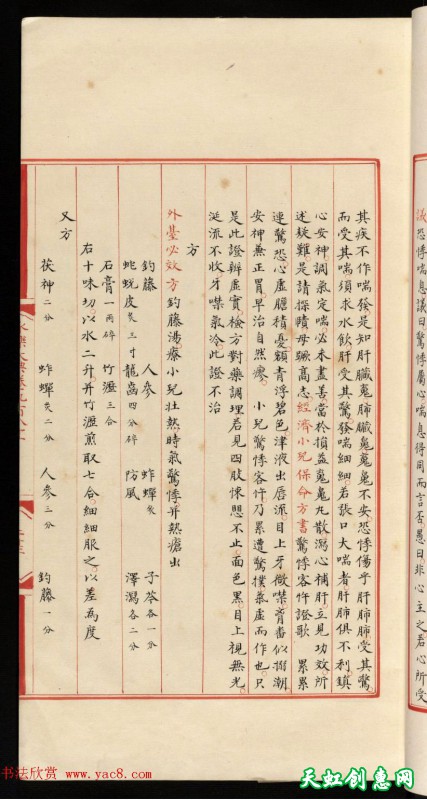 議恐悸喘息議曰驚悸屬心喘息得用而言否愚曰非心主之若心所受
其疾不作喘發是知肝臟魂肺臟魄魂魄不安恐悸傷乎肝肺肺受其驚
而受其喘須求水飲肝受其驚發喘細細若張口大喘者肝肺俱不利鎮
心安神調氣定喘必未盡善當於損益魂魄丸散瀉心補肝立見功效所
述疑難是請探賾母躐高志經濟小兒保命方書驚悸客忤證歌 累累
連驚恐心虛膽積憂額青浮碧色津液出唇溉目上牙噤背番似搐潮
安神兼正胃早治自然瘳 小兒驚悸客忤乃累遭驚撲氣虛而作也只
是此證辨虛實檢方對藥調理若見四肢悚悪不止面色黑目上視無光
涎流不收牙噤氣冷此證不治
方
外臺必效方釣藤湯療小兒壯熱時氣驚悸并熱瘡出
釣藤 人參 蚱蟬炙 子芩各一分
蛇蛻皮炙三寸 龍齒四分碎 防風 澤瀉各二分
石膏一兩碎 竹瀝三合
右十味切以水二升并竹瀝煎取七合細細服之以差為度
又方
茯神二分 蚱蟬炙二分 人參三分 釣藤一分
书法欣赏 www.yac8.com
天虹创惠网